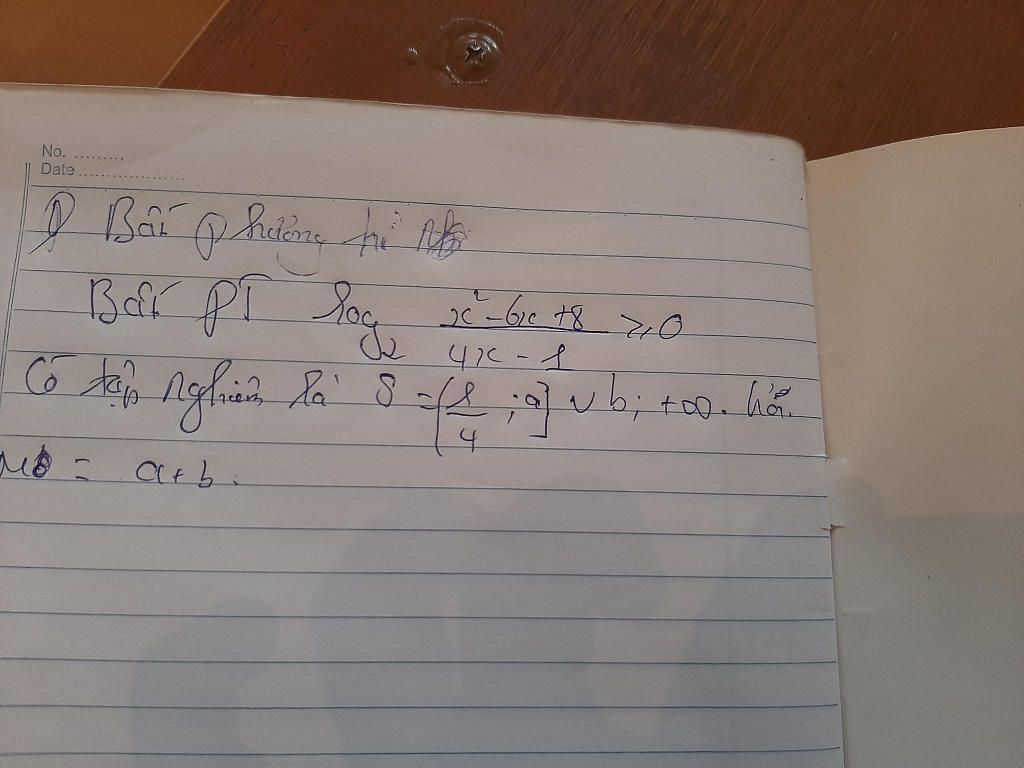 No. .........
Date ....................
Bất phương trì
Bất PT log₂ (x² - 6x + 8)/(4x - 1) ≥ 0
Có tập nghiệm là S = (1/4 ; a] ∪ b; +∞. hỏi
M = a + b.